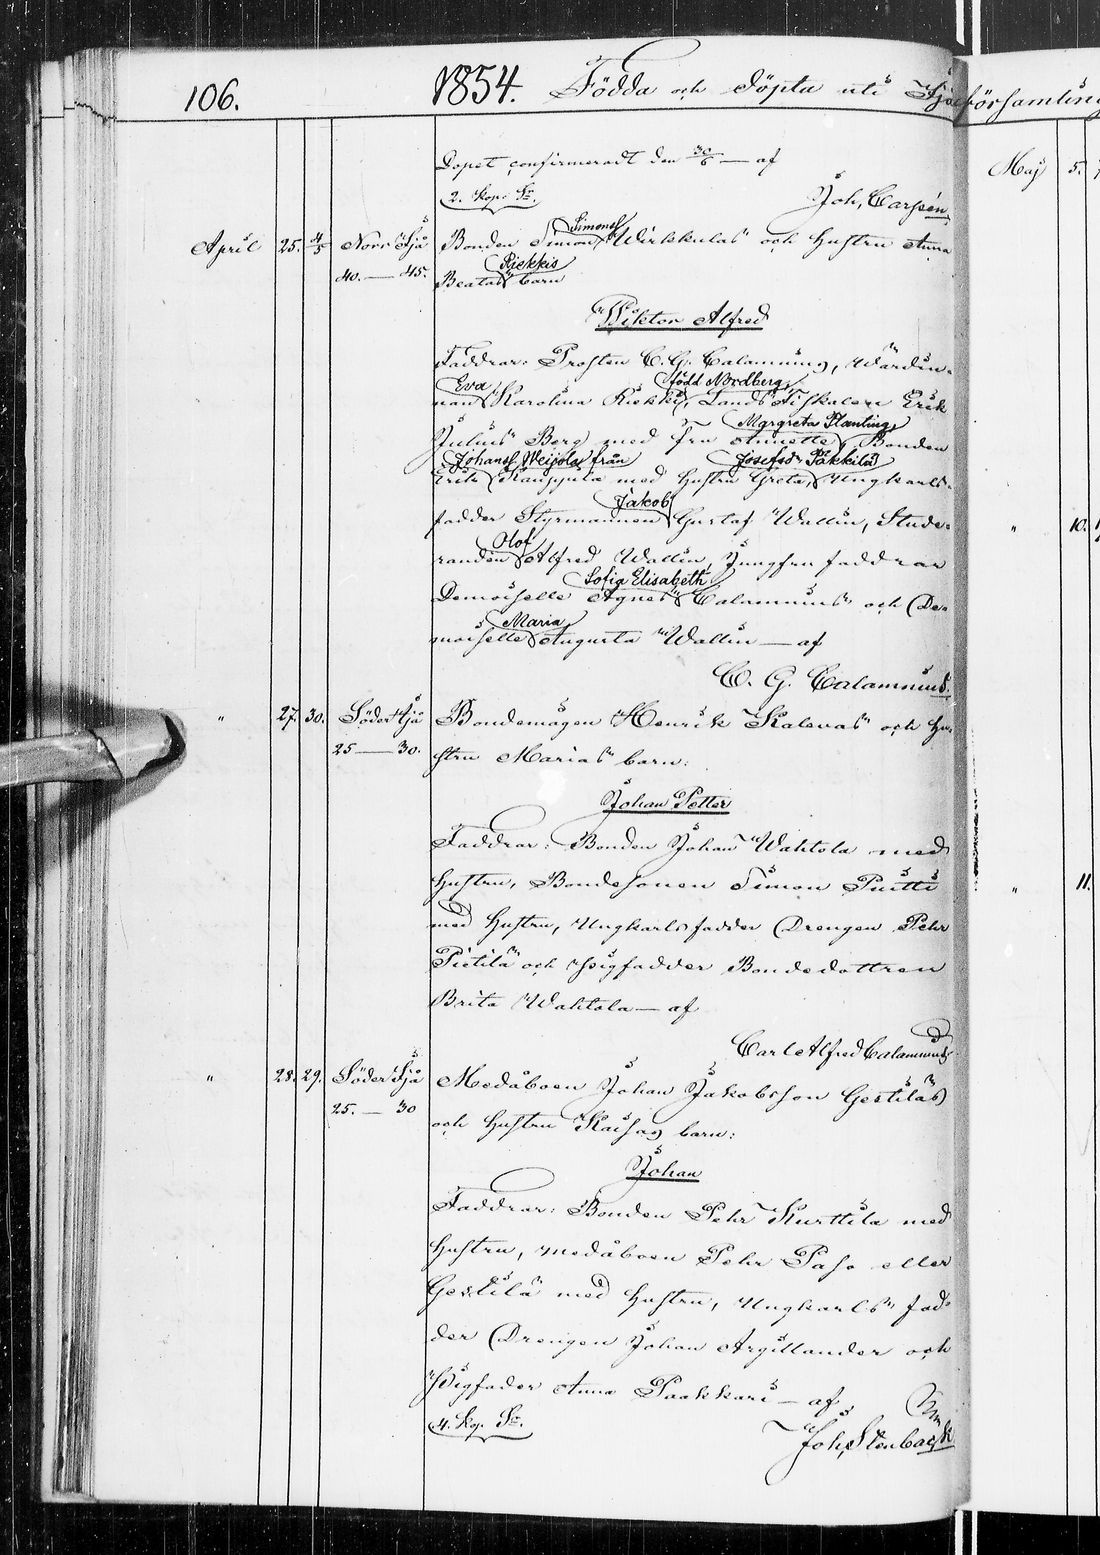 106. 1854. Födda och döpta uti Ijo församling
Dopet confirmeradt den 30/6 — af
2. kop. Sr.
Joh, Carpén,
April 25. 4/5 Norr Ijå
40. — 45.
Bonden Simon Simonss Wirkkulas och hustru Anna
Beatas Riekkis barn
Wiktor Alfred
Faddrar: Prosten C. G. Calamnius, Wärdin-
nan Eva Karolina Riekki, född Nordberg, Lands Fiskalen Erik
Julius Berg med Fru Annette Margreta Planting, Bonden
Erik Johanss Weijola från Kauppila med hustru Greta Josefsdr Pakkila, Ungkarls-
fadder Styrmannen Jakob Gustaf Wallin, Stude-
randen Olof Alfred Wallin, Jungfru faddrar
Demoiselle Agnes Sofia Elisabeth Calamnius och De-
moiselle Maria Augusta Wallin — af
C. G. Calamnius.
" 27. 30. Söder Ijå
25 — 30.
Bondemågen Henrik Kalevas och hu-
stru Marias barn:
Johan Petter
Faddrar: Bonden Johan Wahtola med
hustru, Bondesonen Simon Puitti
med hustru, Ungkarlsfadder Drengen Pehr
Pietilä och Pigfadder Bondedottren
Brita Wahtola — af
Carl Alfred Calamnius
" 28. 29. Söder Ijå
25. — 30
Medåboen Johan Jakobsson Gestiläs
och hustru Kaisas barn:
Johan
Faddrar: Bonden Pehr Kurttila med
hustru, medåboen Pehr Paso eller
Gestilä med hustru, Ungkarls fad-
der Drengen Johan Argillander och
Pigfader Anna Paakkari — af
4. kop. Sr.
Joh, Stenbäck
Maj 5.
" 10.
" 11.